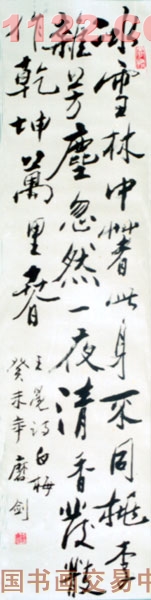 冰雪林中著此身不同桃李
雜芳塵忽然一夜清香發散
作乾坤萬里春
王冕詩白梅
癸未年磨劍
国书画交易中